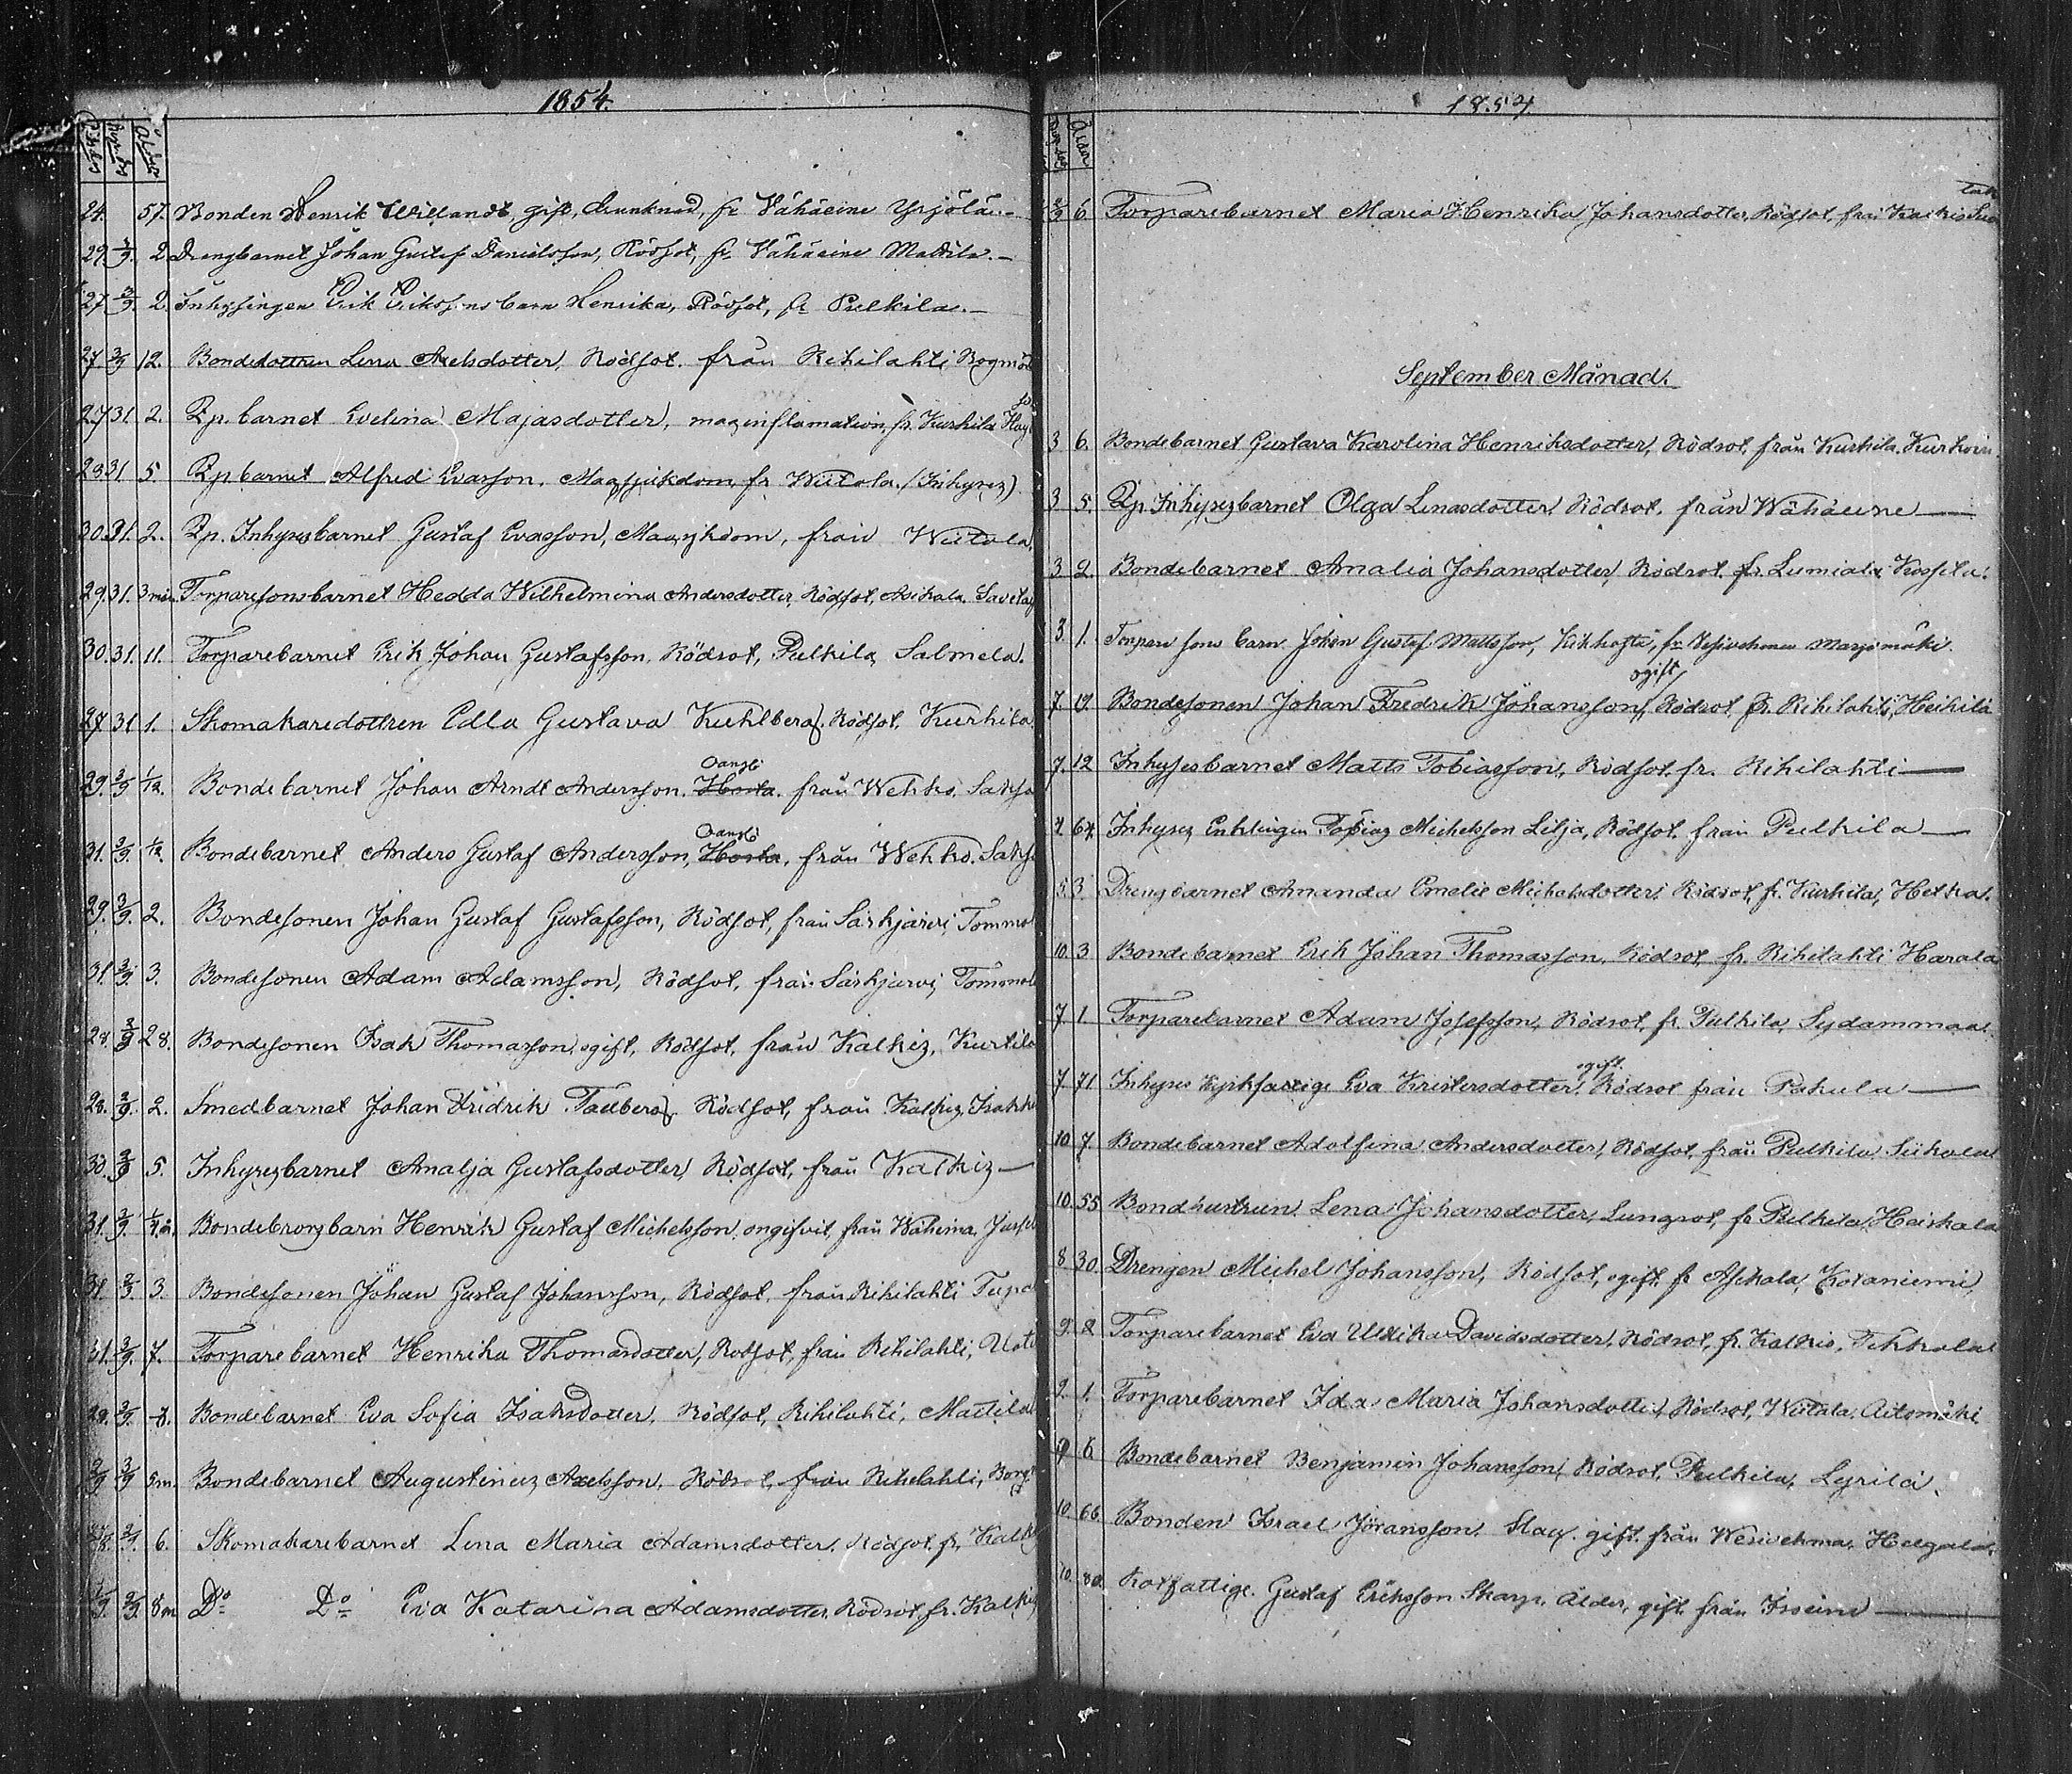 1854.
Ålder
24. 57. Bonden Henrik Willandt, gift, drunknad, fr Vähäeine Yrjölä.
29. 3/9. 2 Drengbarnet Johan Gustaf Danielsson, Rödsot, fr. Vähäeine Mattila.
27. 3/9. 2. Inhysingen Erik Erikssons barn Henrika, Rödsot, fr Pulkila.
27. 3/9 12. Bondedottren Lena Axelsdotter, Rödsot. från Rihilahti
27 31. 2. Qp. barnet Evelina Majasdotter, maginflamation fr. Kurhila
28 31 5. Qp barnet Alfred Evasson. Magsjukdom fr Wiitola. (Inhyses)
30. 31. 2. Qp. Inhyses barnet Gustaf Evasson, Magsjkdom, från Wiitola,
29. 31. 3 mån. Torparesonsbarnet Hedda Wilhelmina Andersdotter, Rödsot, Asikala.
30. 31. 11. Torparebarnet Erik Johan Gustafsson, Rödsot, Pulkila Salmela.
28 31 1. Skomakaredottren Edla Gustava Kuhlberg. Rödsot. Kurhila.
Oansli
29. 3/9 1/12. Bondebarnet Johan Arndt Andersson. Hosta. från Wehko. Saksa
Oansli
31. 3/9. 1/12 Bondebarnet Anders Gustaf Andersson, Hosta, från Wehko. Saks
29. 3/9. 2. Bondesonen Johan Gustaf Gustafsson, Rödsot, från Särkjärvi, Tommol
31. 3/9. 3. Bondesonen Adam Adamsson, Rödsot, från Särkjärvi, Tommol
28. 3/9 28. Bondesonen Isak Thomasson, ogift, Rödsot, från Kalkis, Kurtila
28. 3/9. 2. Smedbarnet Johan Fridrik Tadberg. Rödsot, från Kalkis,
30. 3/9 5. Inhysesbarnet Amalja Gustafsdotter, Rödsot, från Kalkis
31. 3/9. Bondebrorsbarn Henrik Gustaf Michelsson. ongifvit, från
31. 3/9 3. Bondesonen Johan Gustaf Johansson, Rödsot. från Rihilahti
31. 3/9. 7. Torparebarnet Henrika Thomasdotter, Rödsot, från Rihilahti,
29. 3/9. 8. Bondebarnet Eva Sofia Isaksdotter, Rödsot, Rihilahti, Mattila
3/9 5m. Bondebarnet Augustinus Axelsson, Rödsot, från Rihilahti,
3/9. 6. Skomakarebarnet Lena Maria Adamsdotter. Rödsot, fr. Kalk
1/9. 3/9. 8m Do Do Eva Katarina Adamsdotter, Rödsot, fr. Kalkis
1854.
Ålder
6 Torparebarnet Maria Henrika Johansdotter, Rödsot, från Kalkis
September Månad.
3 6. Bondebarnet Gustava Karolina Henriksdotter, Rödsot, från Kurhila.
3. 5. Qp. Inhysesbarnet Olga Lenasdotter Rödsot. från Wähäeine
3 2. Bondebarnet Amalia Johansdotter, Rödsot. fr. Lumiala
3. 1. Torpare sons barn Johan Gustaf Mattsson, Kikhosta, fr Vesivehmaa Marjomäki.
ogift
7. 19. Bondesonen Johan Fredrik Johansson, Rödsot fr. Rihilahti, Heikilä
7. 12 Inhysesbarnet Matts Tobiasson, Rödsot. fr. Rihilahti
7. 67. Inhyses Enklingen Tobias Michelsson Lilja, Rödsot. från Pulkila
5. 3. Drengbarnet Amanda Emelie Michelsdotter. Rödsot, fr. Kurhila,
10. 3 Bondebarnet Erik Johan Thomasson. Rödsot, fr. Rihilahti Harala
7. 1. Torparebarnet Adam Josefsson, Rödsot, fr. Pulkila, Sydammaa.
ogift.
7. 71 Inhyses Kyrkfattige Eva Kristersdotter, Rödsot från Pakula
10. 7. Bondebarnet Adolfina Andersdotter, Rödsot, från Pulkila.
10. 55 Bondhustrun Lena Johansdotter, Lungsot, fr Pulkila,
8. 30. Drengen Michel Johansson, Rödsot, ogift. fr Asikala, Kotaniemi
9. 2 Torparebarnet Eva Ulrika Davidsdotter, Rödsot, fr. Kalkis,
9. 1. Torparebarnet Ida Maria Johansdotter, Rödsot, Wiitala, Aitomäki
9 6 Bondebarnet Benjamin Johansson, Rödsot. Pulkila,
10. 66. Bonden Israel Jöransson Slag. gift. från Wesivehma,
10. 80. Rotfattige. Gustaf Eriksson Skarp. Ålder, gift från